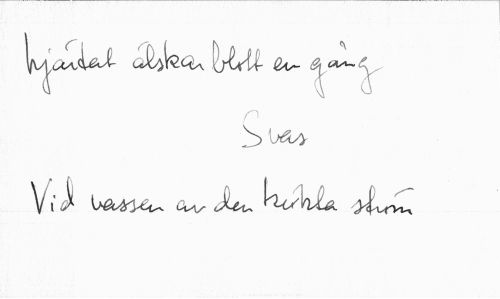 hjärtat älskar blott en gång
Svar
Vid vassen av den